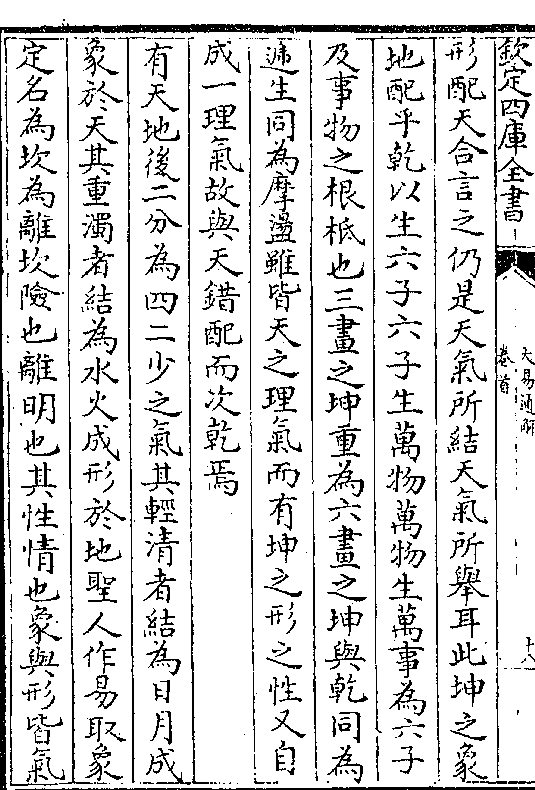 欽定四庫全書
大易通解
卷首
十八
形配天合言之仍是天氣所結天氣所舉耳此坤之象
地配乎乾以生六子六子生萬物萬物生萬事為六子
及事物之根柢也三畫之坤重為六畫之坤與乾同為
遞生同為摩盪雖皆天之理氣而有坤之形之性又自
成一理氣故與天錯配而次乾焉
有天地後二分為四二少之氣其輕清者結為日月成
象於天其重濁者結為水火成形於地聖人作易取象
定名為坎為離坎險也離明也其性情也象與形皆氣